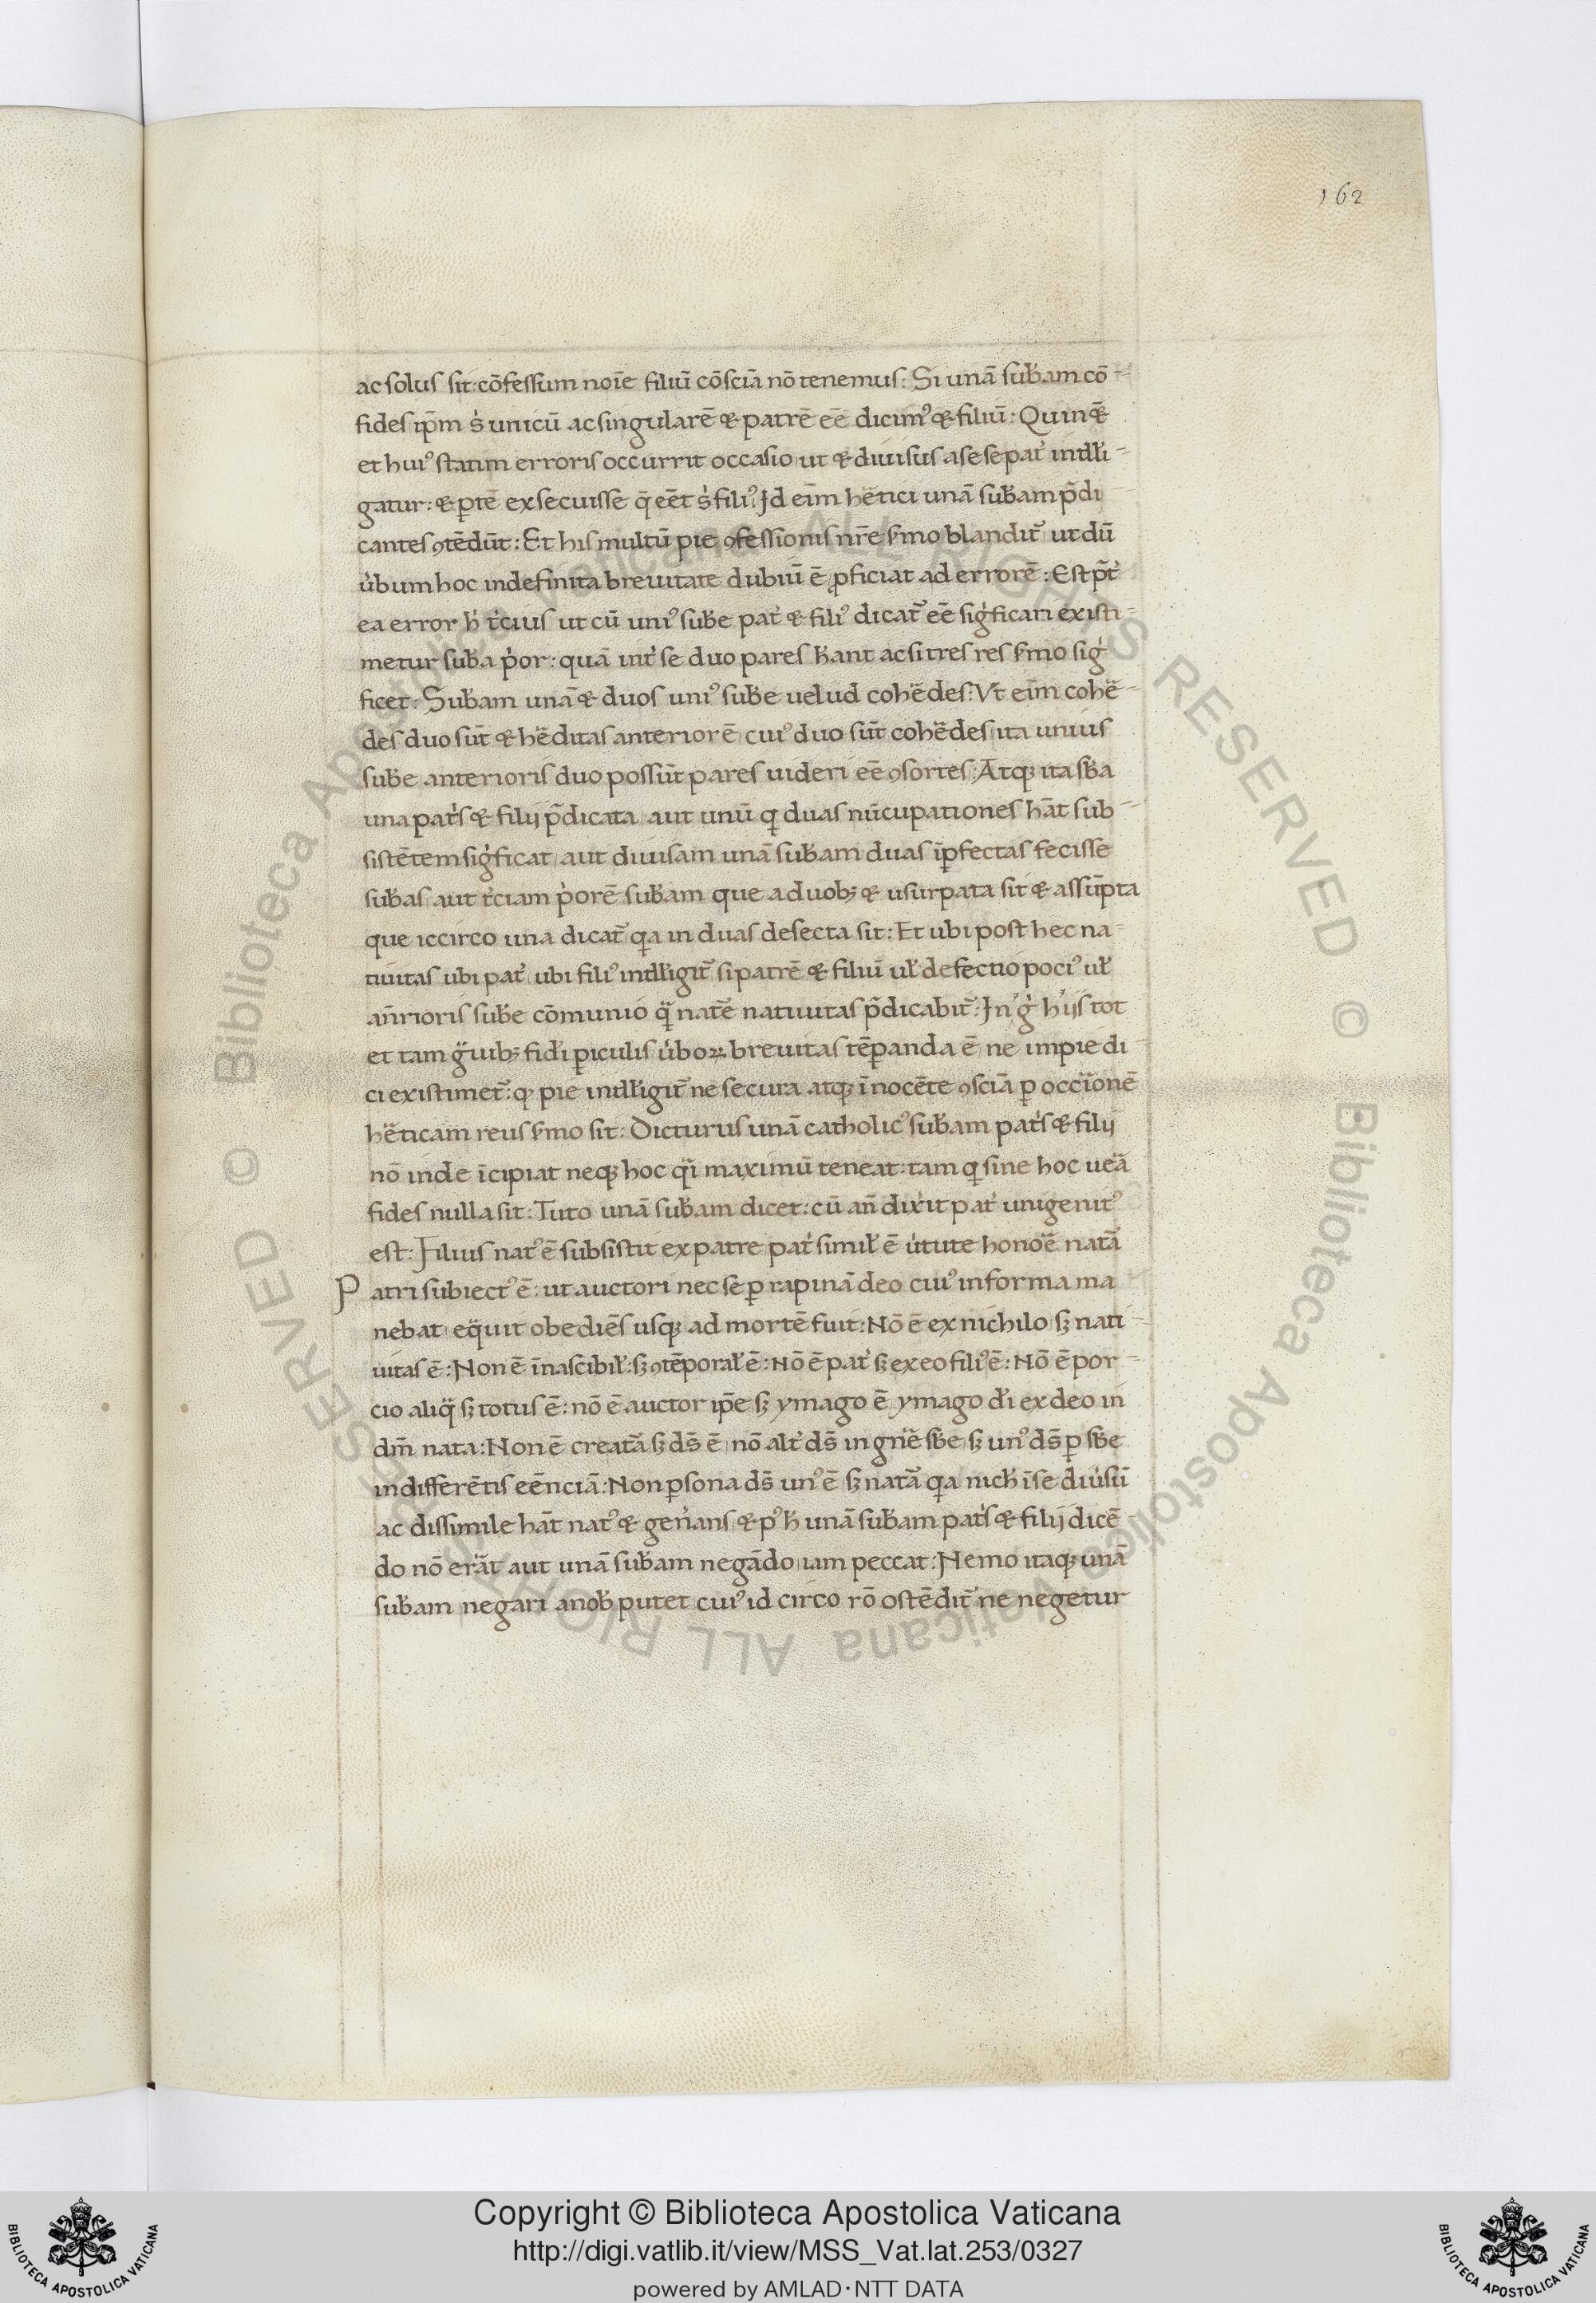 162
ac solus sit: cōfessum noīe filiū cōsciā nō tenemus: Si unā sub̄am cō-
fides ip̄m s; unicū ac singularē & patrē eē dicim⁹ & filiū: Quin &
et hui⁹ statim erroris occurrit occasio ut & diuisus a se se pat̉ intłłi-
gatur: & ꝑtē exsecuisse q̄ eēt s; fili⁹. Id eīm hētici unā sub̄am p̄di
cantes ꝯtēdūt: Et his multū pie ꝯfessionis nr̄e ẜmo blandit᷑ ut dū
ửbum hoc indefinita breuitate dubiū ē ꝓficiat ad errorē: Est p̄t̉
ea error h̉ t̉cius ut cū uni⁹ sub̄e pat̉ & fili⁹ dicat᷑ eē sig̉ficari existi-
metur sub̄a p̉or: quā int̉ se duo pares h̄ant ac si tres res ẜmo sig̉
ficet: Sub̄am unā & duos uni⁹ sub̄e uelud cohēdes: Vt eīm cohē-
des duo sūt & hēditas anterior ē cui⁹ duo sūt cohēdes ita unius
sub̄e anterioris duo possūt pares uideri eē ꝯsortes: Atqꝫ ita sb̄a
una pat̉s & filij p̄dicata aut unū q duas nūcupationes hāt sub-
sistētem sig̉ficat aut diuisam unā sub̄am duas īꝑfectas fecisse
sub̄as aut t̉ciam p̉orē sub̄am que a duobꝫ & usurpata sit & assūpta
que iccirco una dicat᷑ qa in duas desecta sit: Et ubi post hec na-
tiuitas ubi pat̉ ubi fili⁹ intłłigit᷑ si patrē & filiū uł desectio poci⁹ uł
an̄rioris sub̄e cōmunio q̄ nat᷑e natiuitas p̄dicabit᷑: In⁹ g̉ hijs tot
et tam g̈uibꝫ fidei ꝑiculis ửboꝝ breuitas tēꝑanda ē ne impie di
ci existimet᷑: qꝫ pie intłłigit᷑ ne secura atqꝫ īnocēte ꝯsciā ꝑ occīonē
hēticam reus ẜmo sit: Dicturus unā catholic⁹ sub̄am pat̉s & filij
nō inde īcipiat neqꝫ hoc q̄i maximū teneat: tam q sine hoc ueā
fides nulla sit: Tuto unā sub̄am dicet: cū an̄ dix̉it pat̉ unigenit⁹
est: Filius nat⁹ ē subsistit ex patre pat̉ simił ē ửtute honoē nat᷑a
Patri subiect⁹ ē: ut auctori nec se ꝑ rapinā deo cui⁹ in forma ma
nebat eq̈uit obediēs usqꝫ ad mortē fuit: Nō ē ex nichilo sꝫ nati-
uitas ē: Non ē īnascibił: sꝫ ꝯtēporał ē: Nō ē pat̉ sꝫ ex eo fili⁹ ē: Nō ē por-
cio aliq̈ sꝫ totus ē: nō ē auctor ip̄e sꝫ ymago ē ymago di̓ ex deo in
dm̄ nata: Non ē creat᷑a sꝫ ds̄ ē nō alt̉ ds̄ in gn̄e sb̄e sꝫ un⁹ ds̄ ꝑ sb̄e
indifferētis eēnciā: Non ꝑsona ds̄ un⁹ ē sꝫ nat᷑a qa nich̓ i se diửsū
ac dissimile hāt nat⁹ & gen̉ans & p⁹ h̉ unā sub̄am pat̉s & filij dicē-
do nō er̈at aut unā sub̄am negādo iam peccat: Nemo itaqꝫ unā
sub̄am negari a nob̓ putet cui⁹ id circo rō ostēdit᷑ ne negetur
Copyright © Biblioteca Apostolica Vaticana
http://digi.vatlib.it/view/MSS_Vat.lat.253/0327
powered by AMLAD·NTT DATA